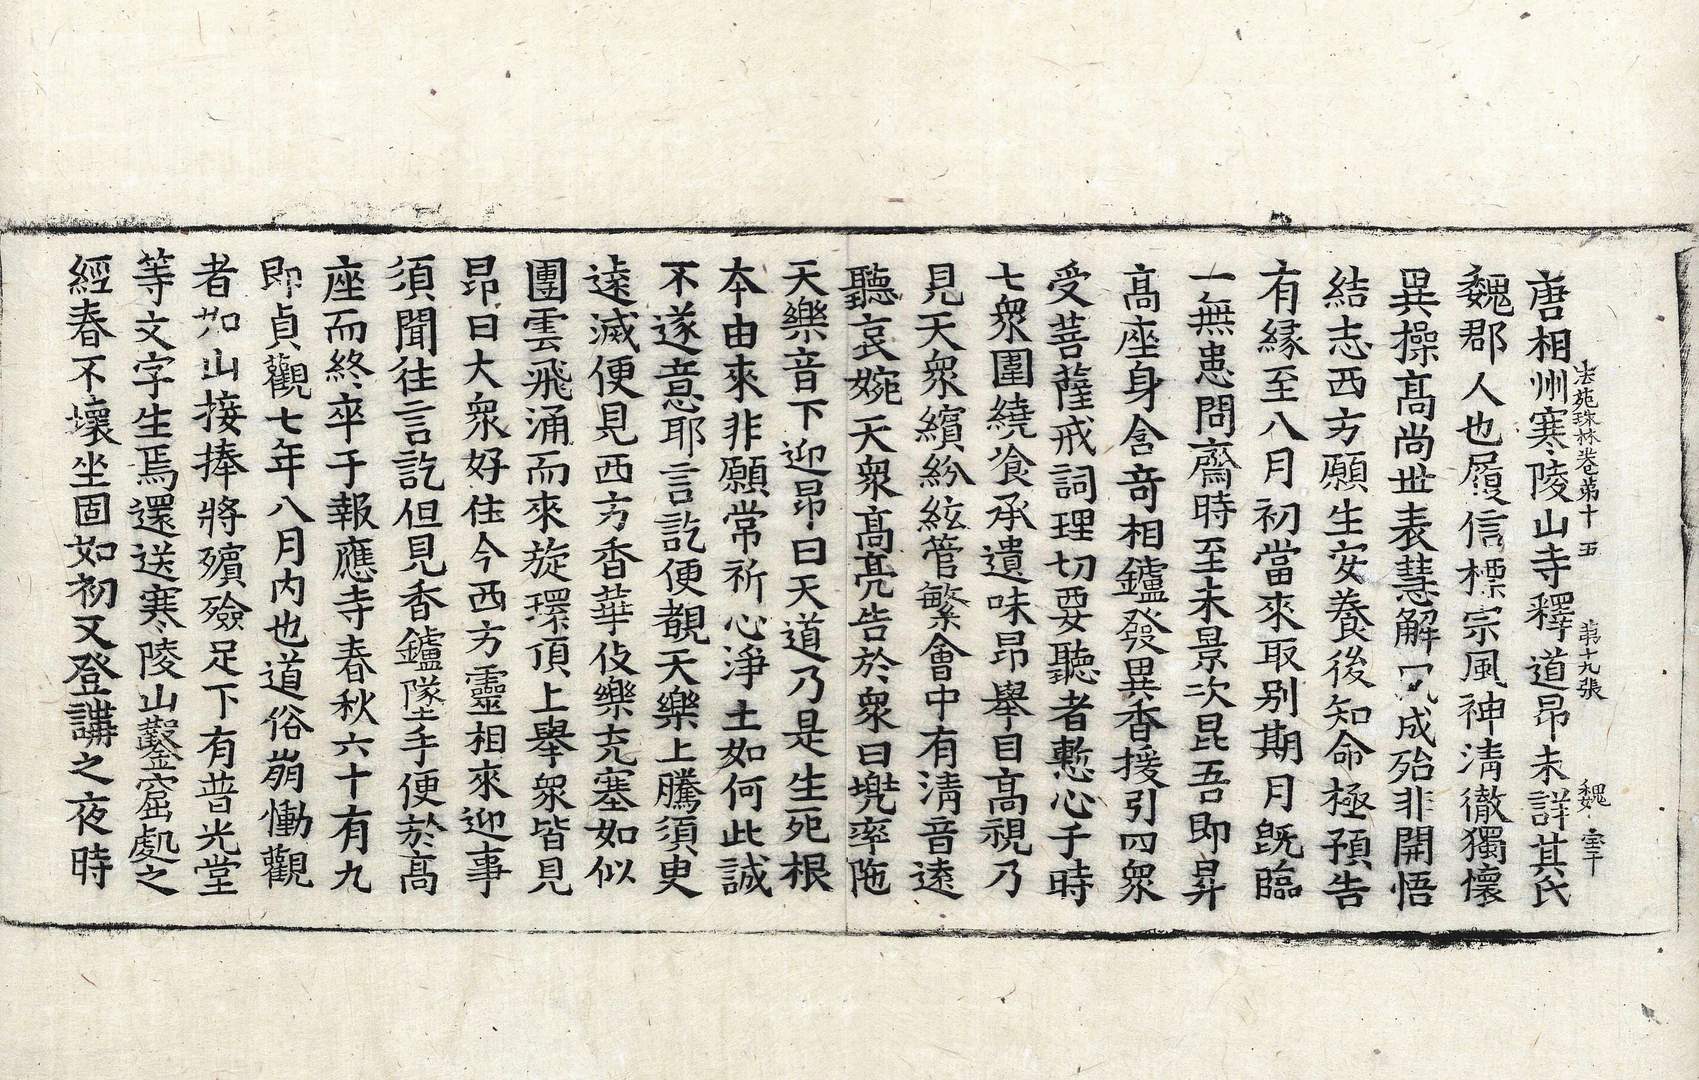 法苑珠林卷第十五　第十九張　魏
唐相州寒陵山寺釋道昂未詳其氏
魏郡人也履信標宗風神清徹獨懷
異操髙尚世表慧解夙成殆非開悟
結志西方願生安養後知命極預告
有緣至八月初當來取别期月既臨
一無患問齋時至未景次昆吾即昇
髙座身含竒相鑪發異香援引四衆
受菩薩戒詞理切要聽者慙心于時
七衆圍繞飡承遺味昂舉目髙視乃
見天衆繽紛絃管繁會中有清音逺
聽哀婉天衆髙亮告於衆曰兠率陁
天樂音下迎昂曰天道乃是生死根
本由來非願常祈心淨土如何此誠
不遂意耶言訖便覩天樂上騰須臾
逺滅便見西方香華伎樂充塞如似
團雲飛涌而來旋環頂上舉衆皆見
昂曰大衆好住今西方靈相來迎事
須聞徃言訖但見香鑪墜手便於髙
座而終卒于報應寺春秋六十有九
即貞觀七年八月内也道俗崩慟觀
者如山接捧將殯殮足下有普光堂
等文字生焉還送寒陵山鑿窟處之
經春不壞坐固如初又登講之夜時